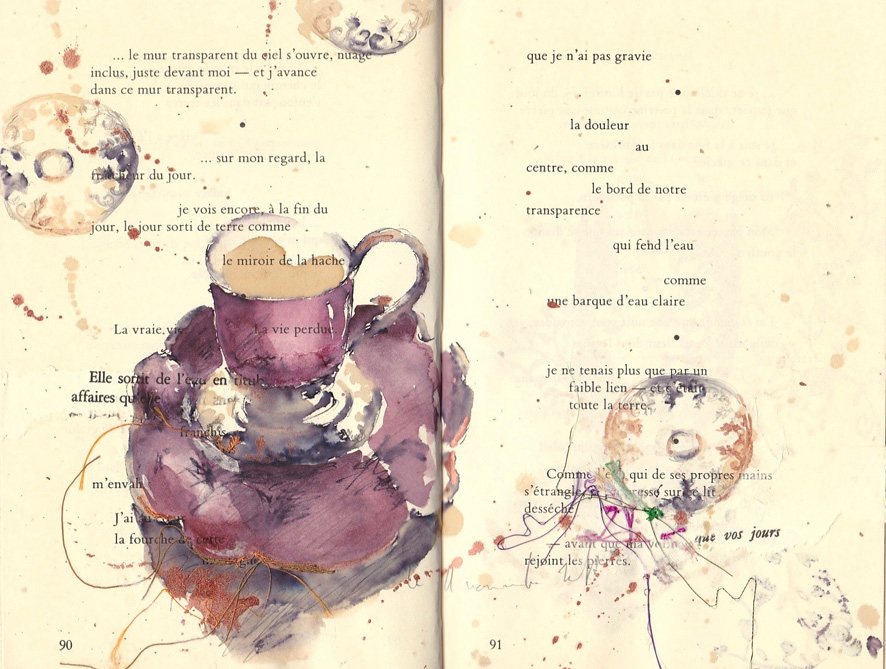 ... le mur transparent du ciel s'ouvre, nuage
inclus, juste devant moi — et j'avance
dans ce mur transparent.
•
... sur mon regard, la
fraîcheur du jour.
je vois encore, à la fin du
jour, le jour sorti de terre comme
le miroir de la hache
La vraie vie
La vie perdue
Elle sortit de l'eau en
affaires qu'elle
franchis
m'envah
J'ai
la fourche de cette
90
que je n'ai pas gravie
•
la douleur
au
centre, comme
le bord de notre
transparence
qui fend l'eau
comme
une barque d'eau claire
•
je ne tenais plus que par un
faible lien — et c'était
toute la terre.
•
Comme qui de ses propres mains
s'étrangle sur le lit
desséché
— avant que ma
que vos jours
rejoint les pierres.
91